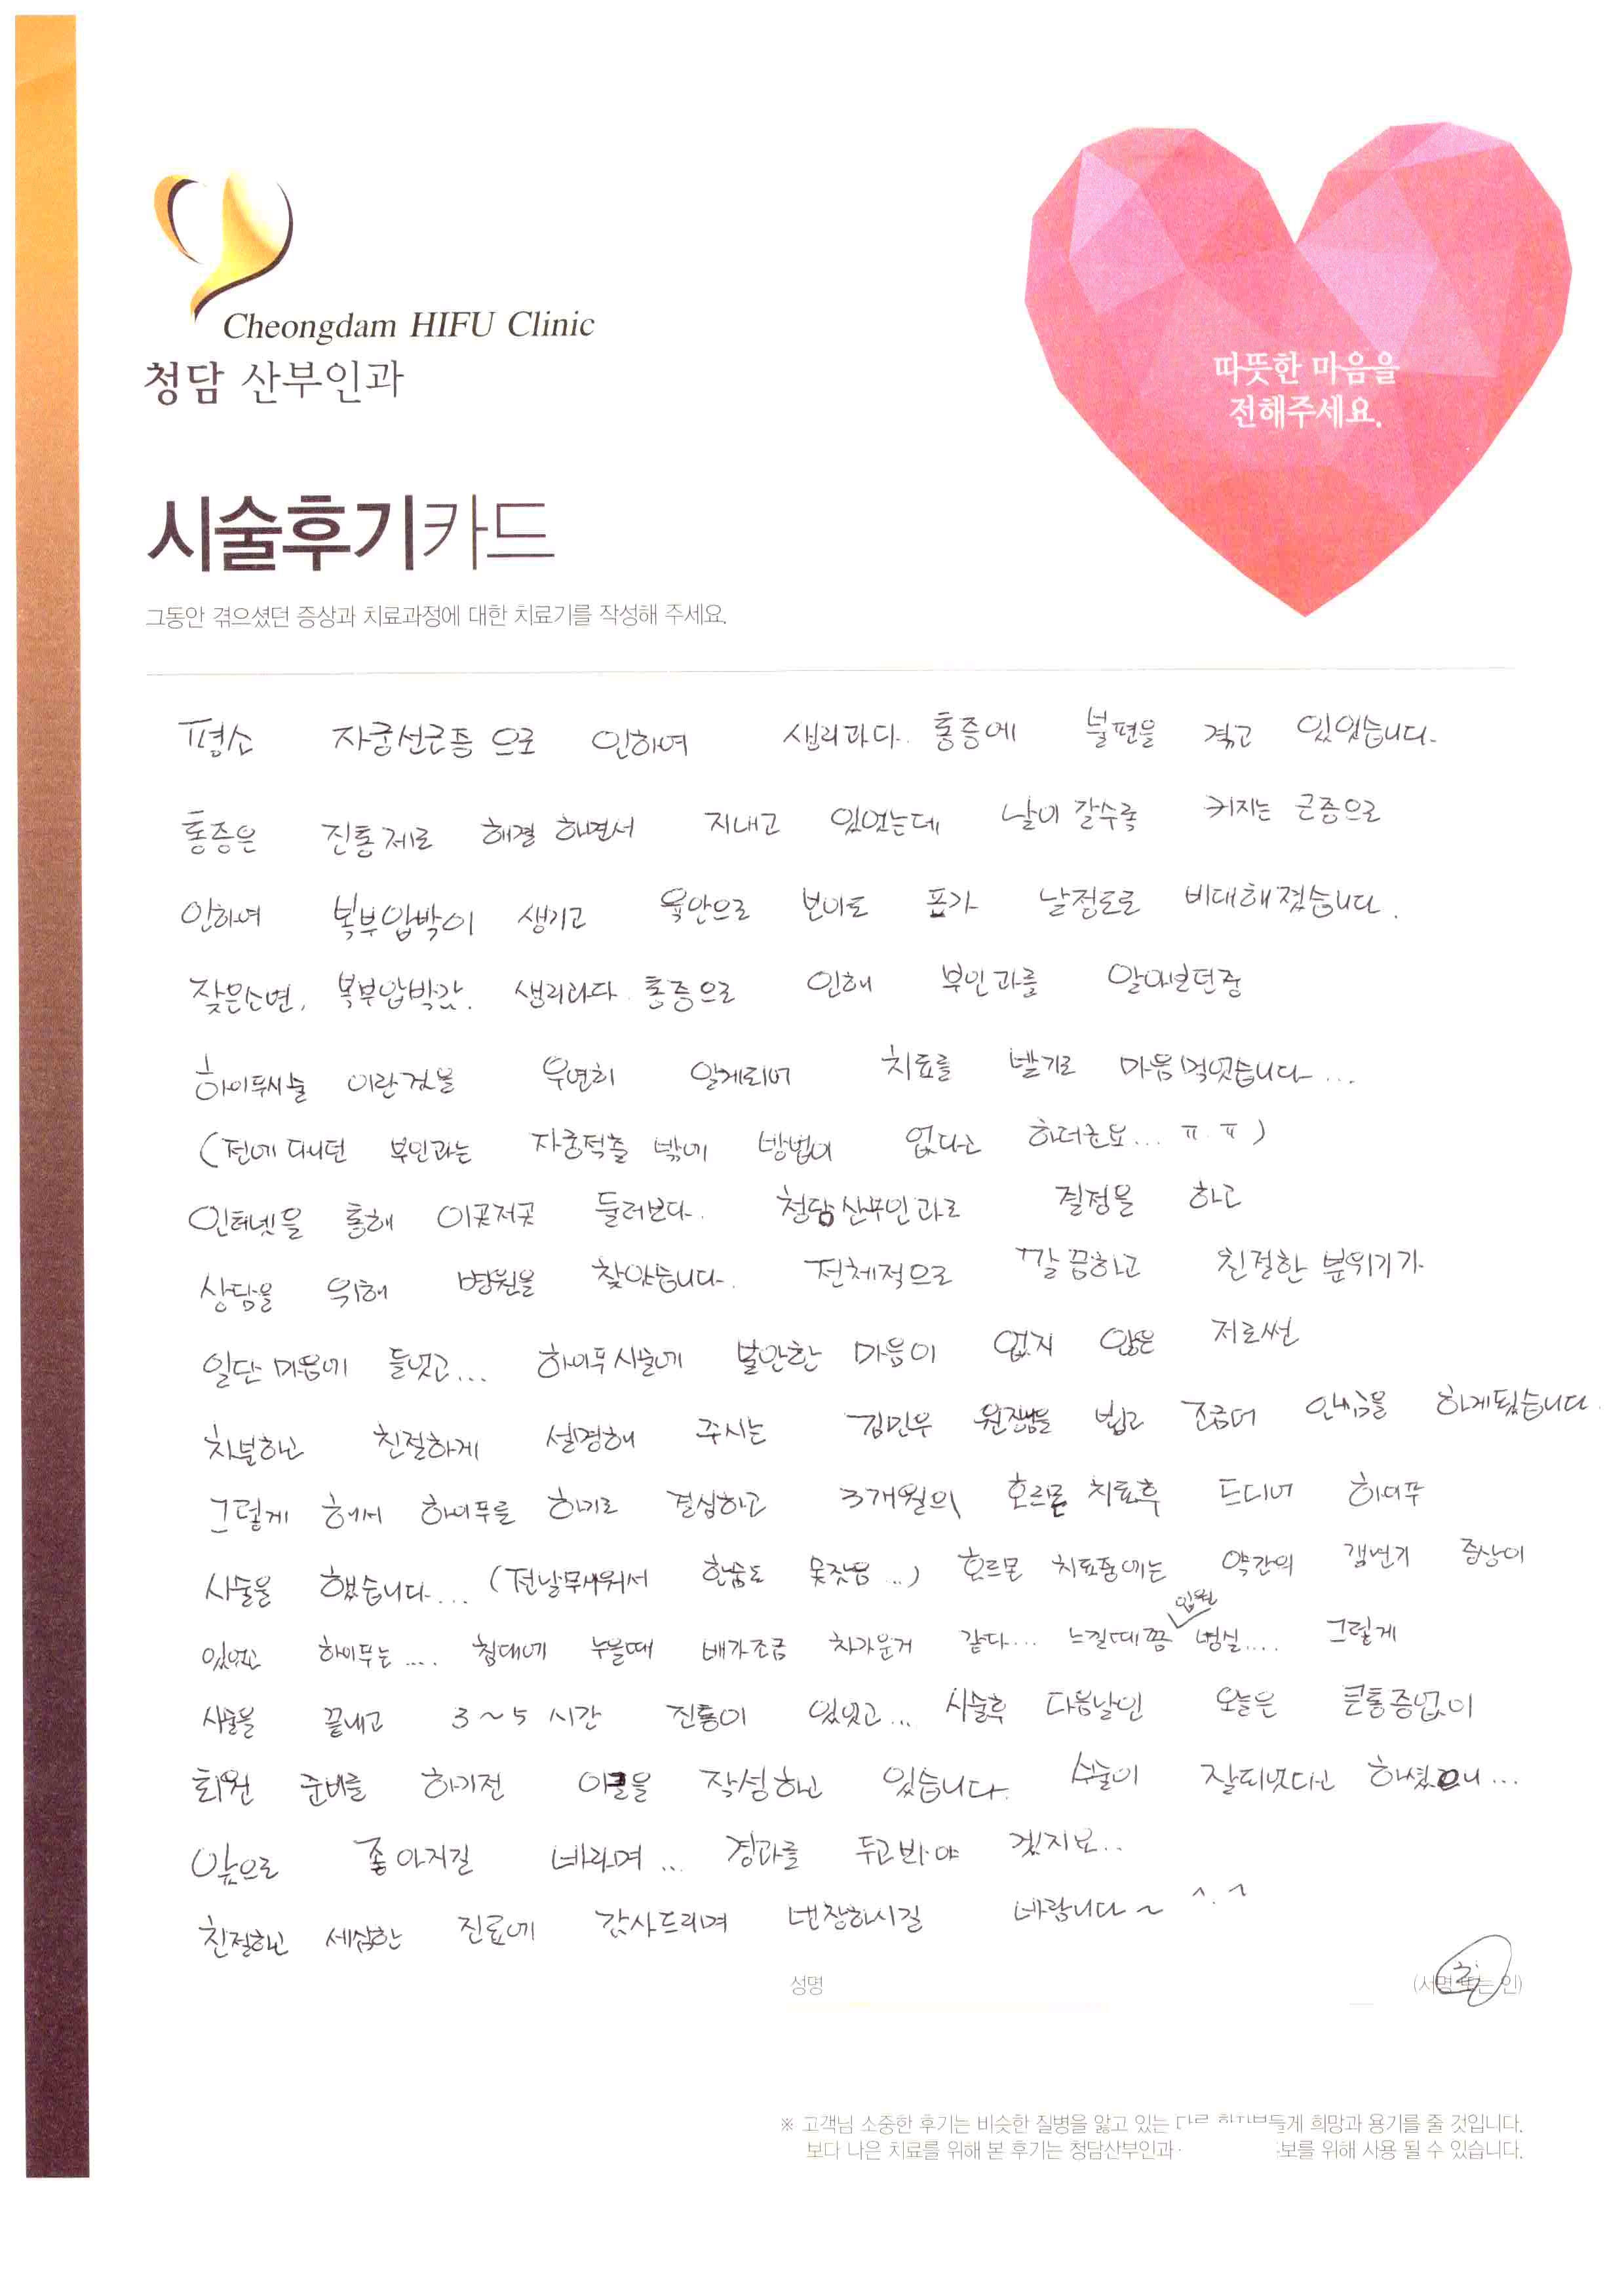 Cheongdam HIFU Clinic
청담 산부인과
따뜻한 마음을
전해주세요.
시술후기카드
그동안 겪으셨던 증상과 치료과정에 대한 치료기를 작성해 주세요.
평소 자궁선근증으로 인하여 생리과다. 통증에 불편을 겪고 있었습니다.
통증은 진통제로 해결 하면서 지내고 있었는데 날이 갈수록 커지는 근종으로
인하여 복부압박이 생기고 육안으로 보아도 표가 날정도로 비대해졌습니다.
잦은소변, 복부압박감. 생리과다. 통증으로 인해 부인과를 알아보던중
하이푸시술 이란것을 우연히 알게되어 치료를 받기로 마음먹었습니다...
(전에 다니던 부인과는 자궁적출 밖에 방법이 없다고 하더군요... ㅠ.ㅠ)
인터넷을 통해 이곳저곳 둘러보다. 청담산부인과로 결정을 하고
상담을 위해 병원을 찾았습니다. 전체적으로 깔끔하고 친절한 분위기가
일단 마음에 들었고... 하이푸시술에 불안한 마음이 없지 않은 저로썬
차분하고 친절하게 설명해 주시는 김민우 원장님을 뵙고 조금더 안심을 하게됬습니다.
그렇게 해서 하이푸를 하기로 결심하고 3개월의 호르몬 치료후 드디어 하이푸
시술을 했습니다... (전날무서워서 한숨도 못잤음...) 호르몬 치료중에는 약간의 갱년기 증상이
있었고 하이푸는.... 침대에 누울때 배가조금 차가운거 같다... 느낄때쯤 입원 병실.... 그렇게
시술을 끝내고 3~5시간 진통이 있었고... 시술후 다음날인 오늘은 큰통증없이
퇴원 준비를 하기전 이글을 작성하고 있습니다. 수술이 잘되었다고 하셨으니...
앞으로 좋아지길 바라며... 경과를 두고봐야 겠지요..
친절하고 세심한 진료에 감사드리며 번창하시길 바랍니다~ ^.^
성명 (서명 또는 인)
※ 고객님 소중한 후기는 비슷한 질병을 앓고 있는 게 희망과 용기를 줄 것입니다.
보다 나은 치료를 위해 본 후기는 청담산부인과 위해 사용 될 수 있습니다.